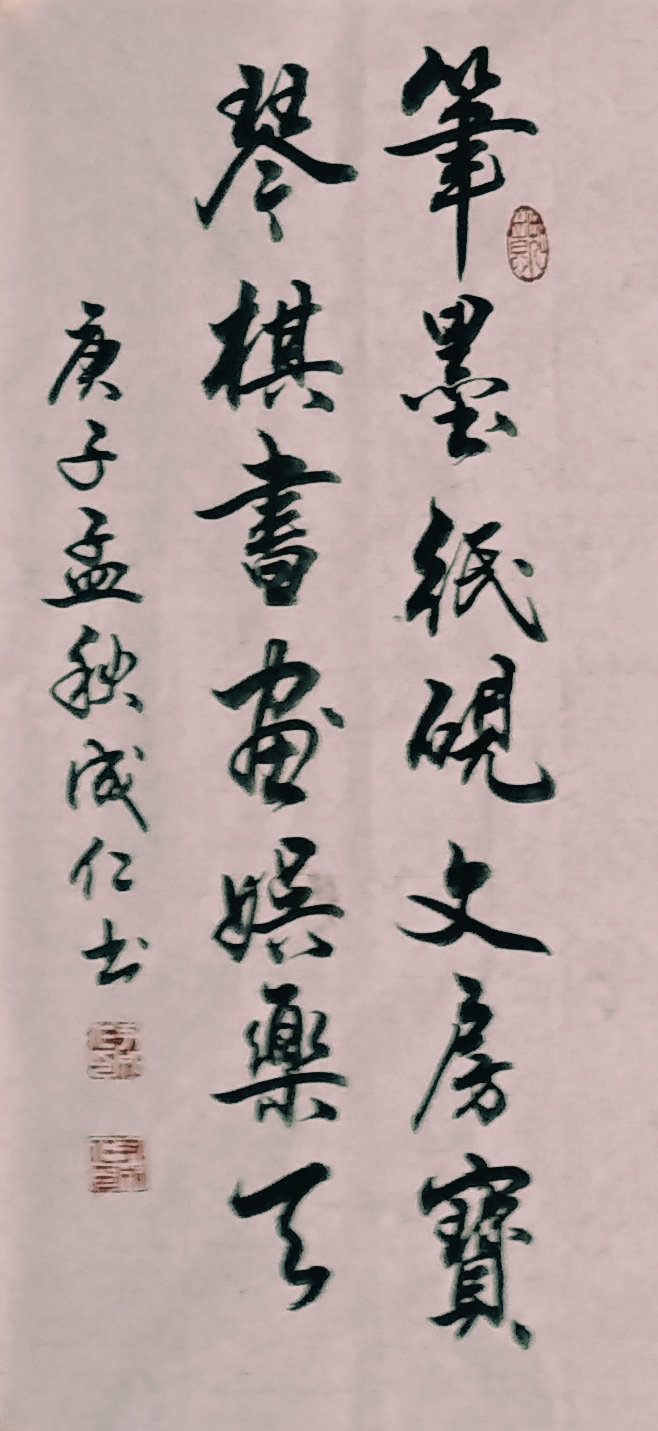 筆墨紙硯文房寶
琴棋書畫娯樂天
庚子孟秋成仁书